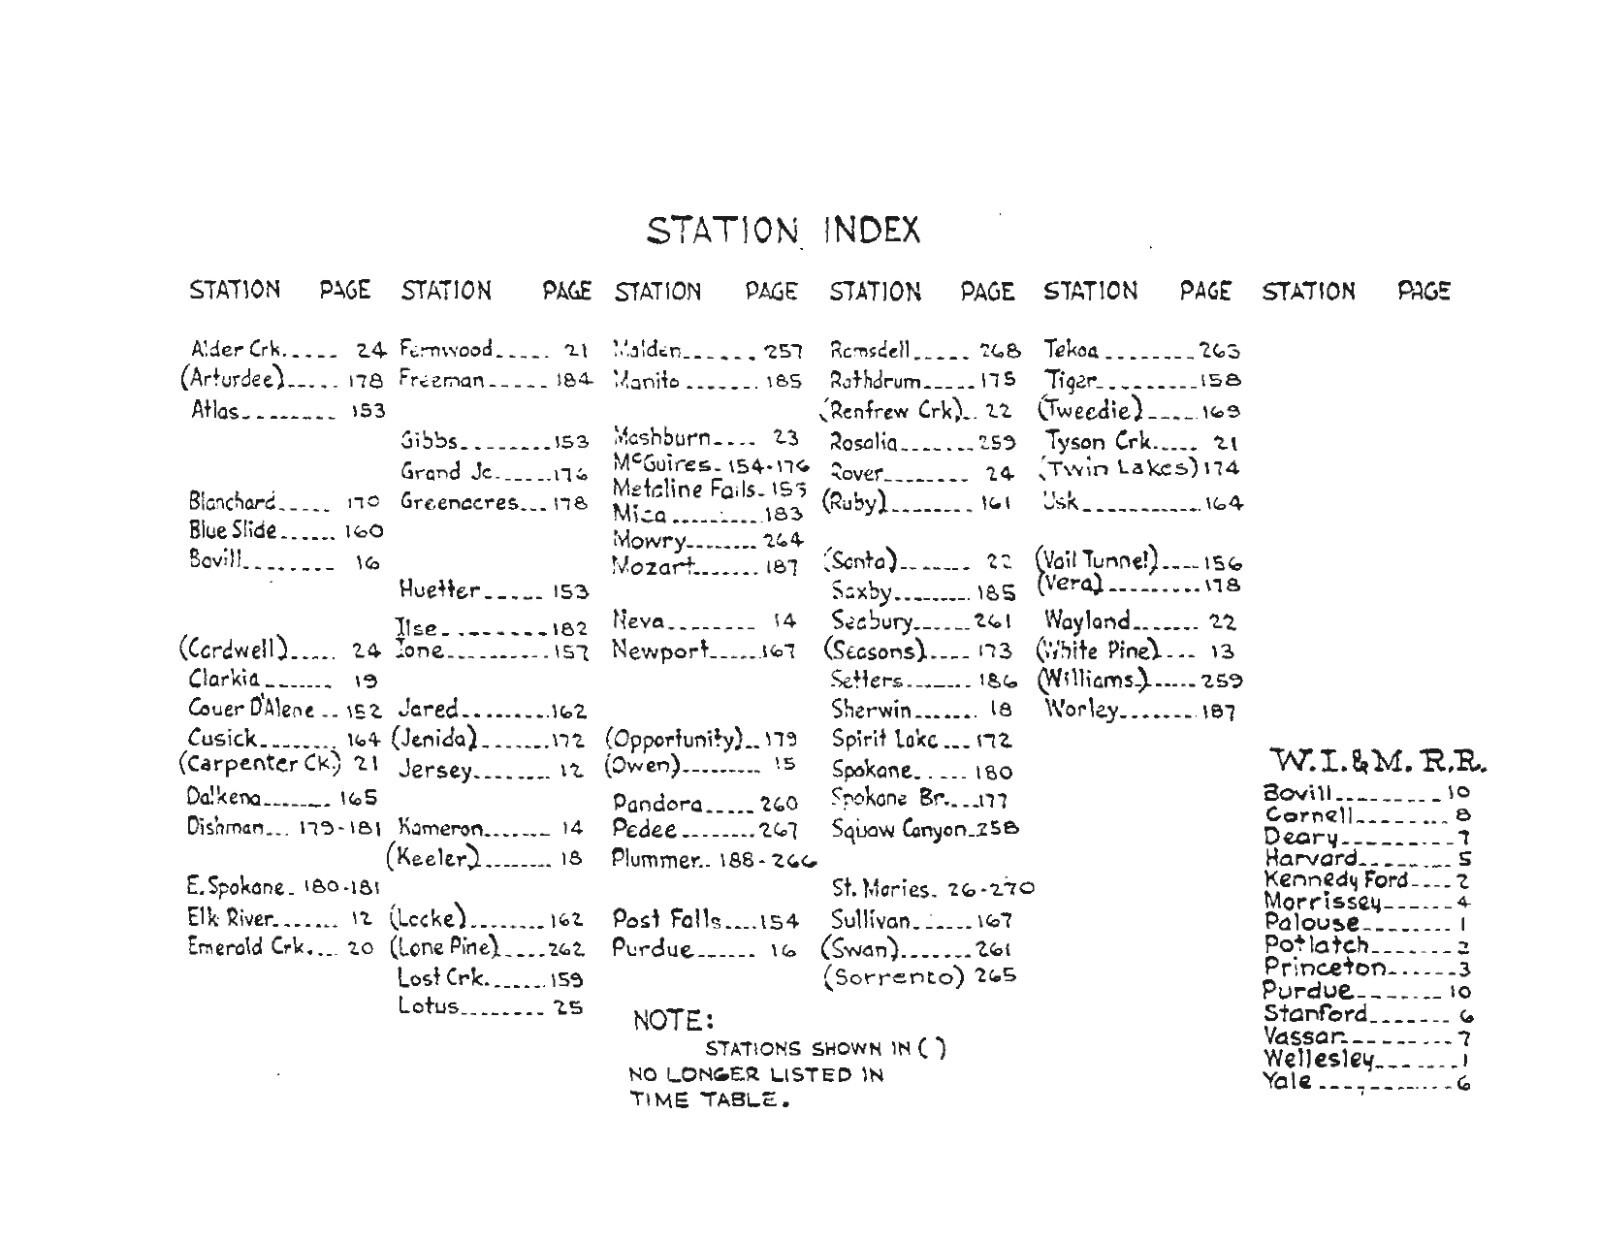 STATION INDEX
STATION PAGE
Alder Crk. 24
(Arturdee) 178
Atlas 153
Blanchard 170
Blue Slide 160
Bovill 16
(Cardwell) 24
Clarkia 19
Couer D'Alene 152
Cusick 164
(Carpenter Ck.) 21
Dalkena 165
Dishman 179-181
E. Spokane 180-181
Elk River 12
Emerald Crk. 20
STATION PAGE
Fernwood 21
Freeman 184
Gibbs 153
Grand Jc. 176
Greenacres 178
Huetter 153
Ilse 182
Ione 157
Jared 162
(Jenida) 172
Jersey 12
Kameron 14
(Keeler) 18
(Locke) 162
(Lone Pine) 262
Lost Crk. 159
Lotus 25
STATION PAGE
Malden 257
Manito 185
Mashburn 23
McGuires 154-176
Metaline Falls 155
Mica 183
Mowry 264
Mozart 187
Neva 14
Newport 167
(Opportunity) 179
(Owen) 15
Pandora 260
Pedee 267
Plummer 188-266
Post Falls 154
Purdue 16
NOTE:
STATIONS SHOWN IN ( )
NO LONGER LISTED IN
TIME TABLE.
STATION PAGE
Ramsdell 268
Rathdrum 175
(Renfrew Crk) 22
Rosalia 259
Rover 24
(Ruby) 161
(Santa) 22
Saxby 185
Seabury 261
(Seasons) 173
Setters 186
Sherwin 18
Spirit Lake 172
Spokane 180
Spokane Br. 177
Squaw Canyon 258
St. Maries 26-270
Sullivan 167
(Swan) 261
(Sorrento) 265
STATION PAGE
Tekoa 263
Tiger 158
(Tweedie) 169
Tyson Crk. 21
(Twin Lakes) 174
Usk 164
(Vail Tunnel) 156
(Vera) 178
Wayland 22
(White Pine) 13
(Williams.) 259
Worley 187
STATION PAGE
W.I.&M. R.R.
Bovill 10
Cornell 8
Deary 7
Harvard 5
Kennedy Ford 2
Morrissey 4
Palouse 1
Potlatch 2
Princeton 3
Purdue 10
Stanford 6
Vassar 7
Wellesley 1
Yale 6